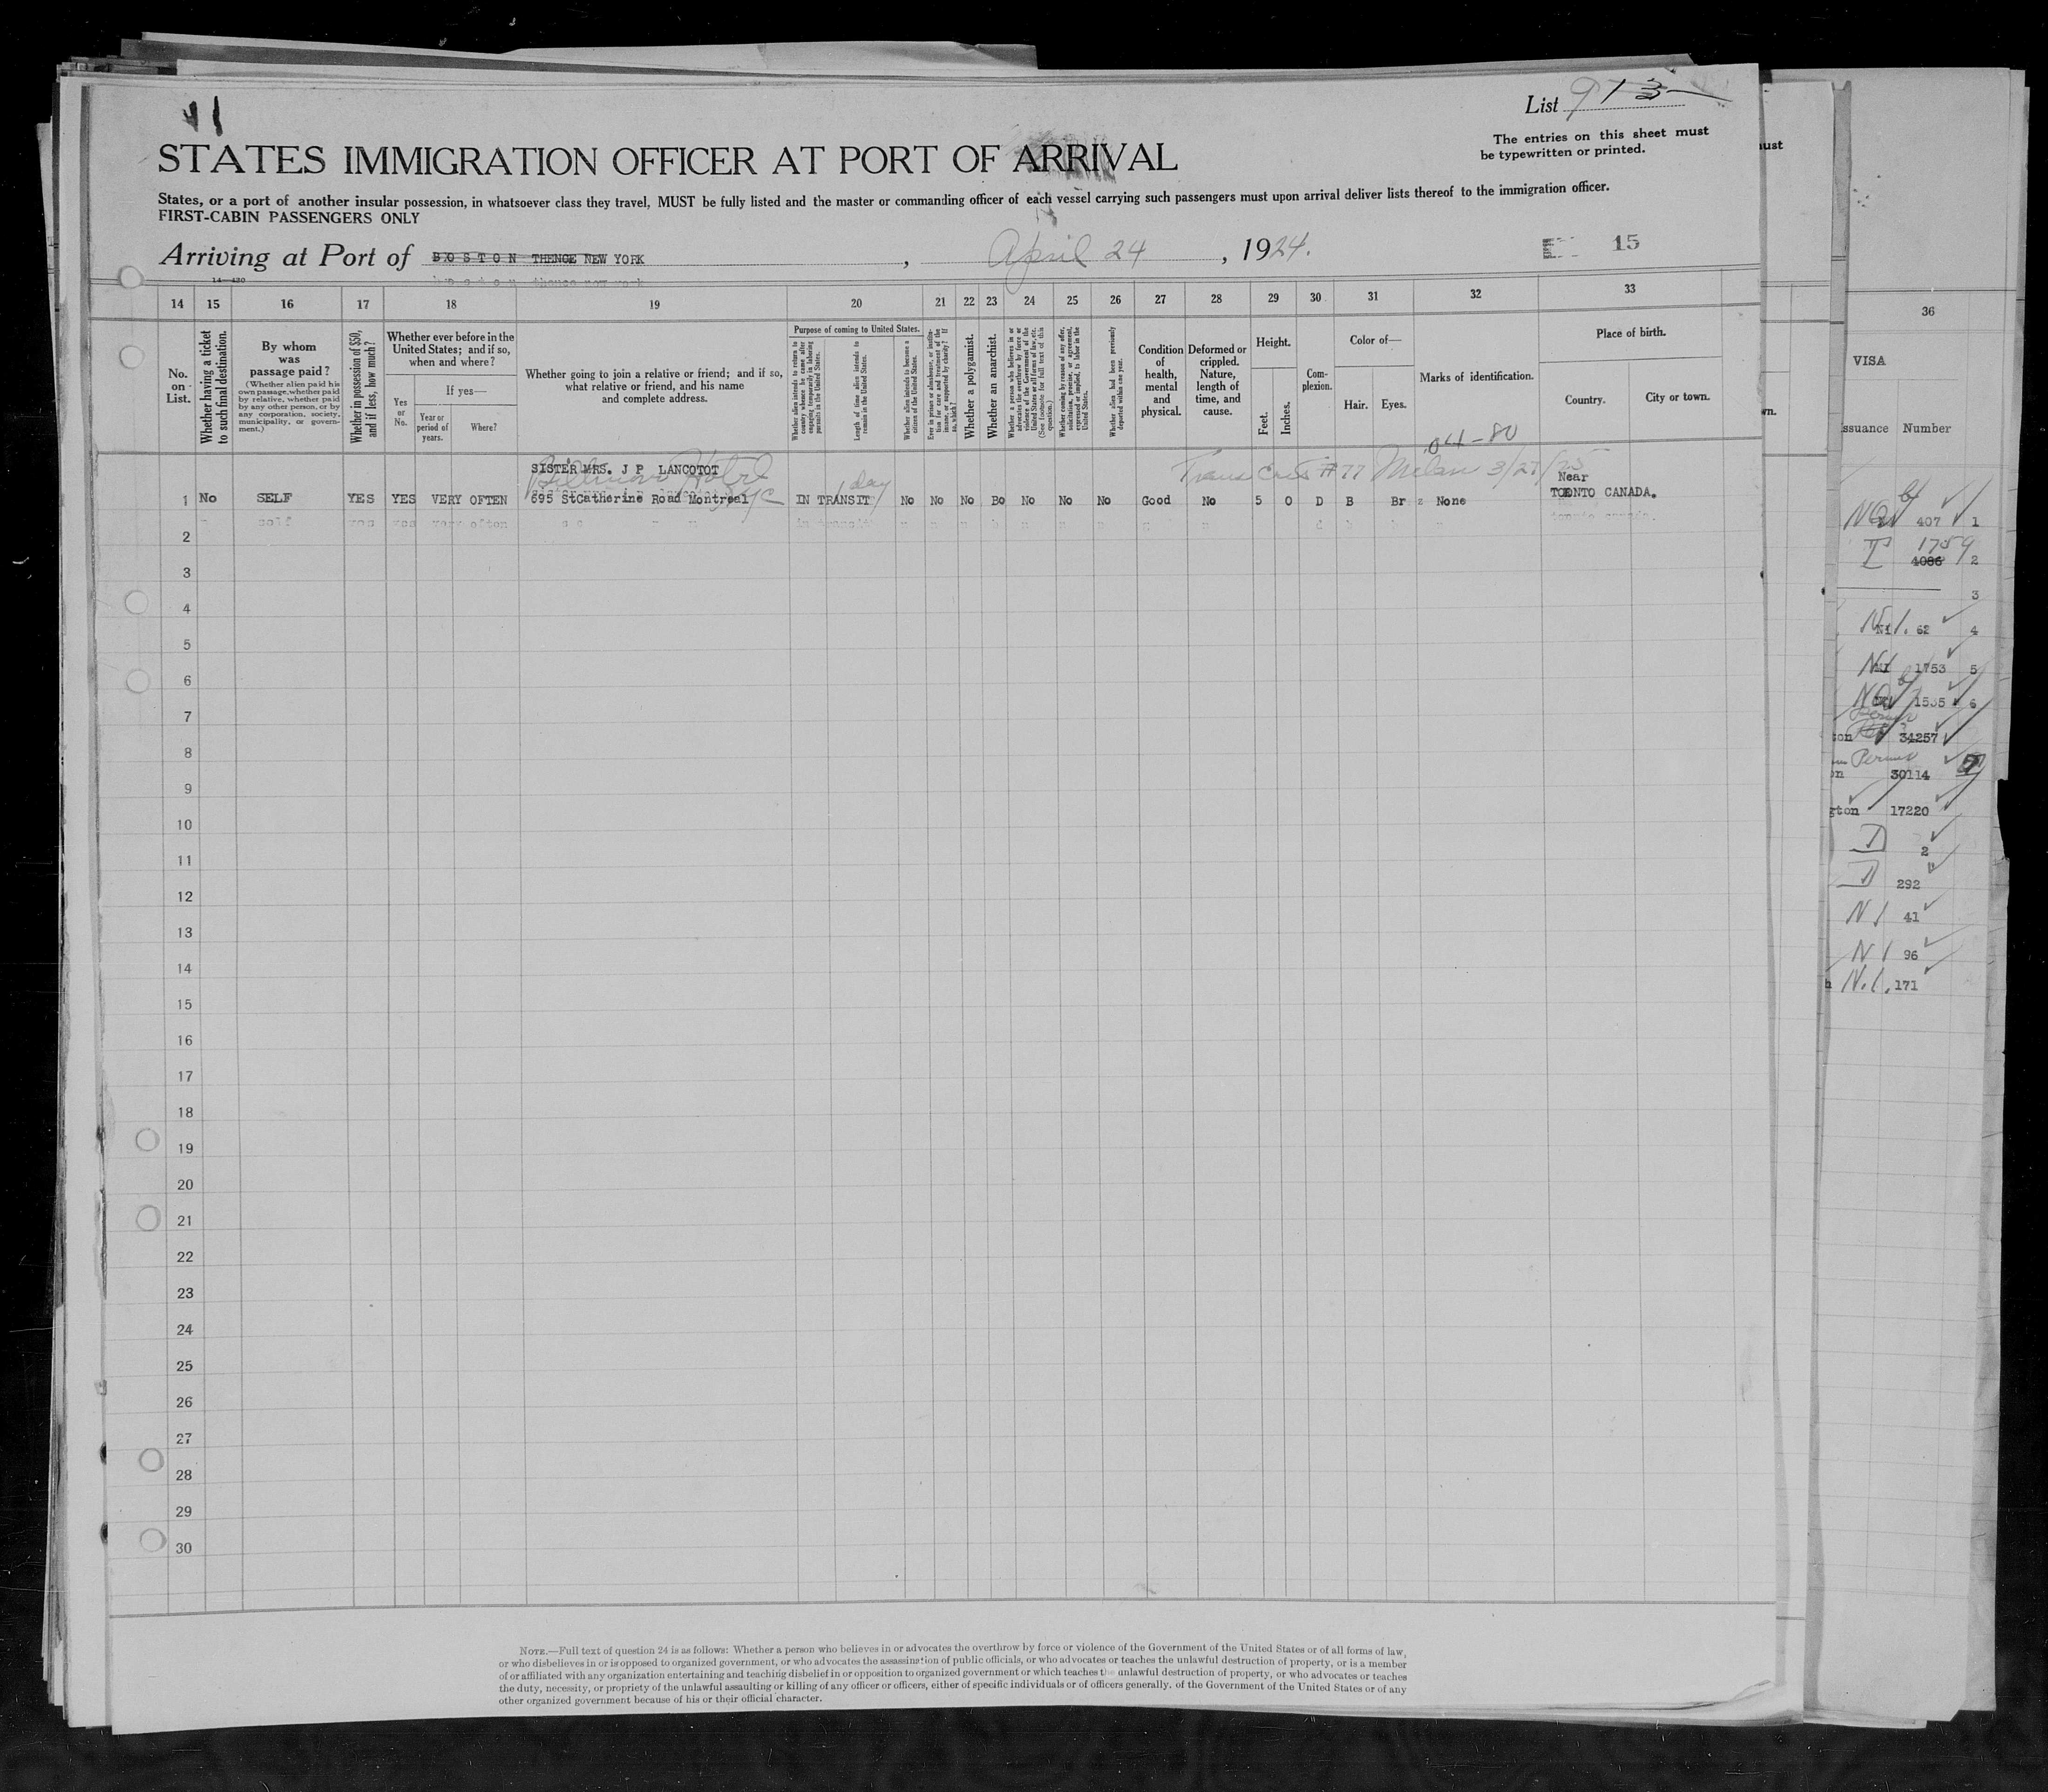 List 913
The entries on this sheet must
be typewritten or printed.
STATES IMMIGRATION OFFICER AT PORT OF ARRIVAL
States, or a port of another insular possession, in whatsoever class they travel, MUST be fully listed and the master or commanding officer of each vessel carrying such passengers must upon arrival deliver lists thereof to the immigration officer.
FIRST-CABIN PASSENGERS ONLY
Arriving at Port of BOSTON THENCE NEW YORK, April 24, 1924.
15
14—430
14 15 16 17 18 19 20 21 22 23 24 25 26 27 28 29 30 31 32 33
No. on List.
Whether having a ticket to such final destination.
By whom was passage paid?
(Whether alien paid his own passage, whether paid by relative, whether paid by any other person, or by any corporation, society, municipality, or government.)
Whether in possession of $50, and if less, how much?
Whether ever before in the United States; and if so, when and where?
Yes or No.
If yes—
Year or period of years.
Where?
Whether going to join a relative or friend; and if so, what relative or friend, and his name and complete address.
Purpose of coming to United States.
Whether alien intends to return to country whence he came after engaging temporarily in laboring pursuits in the United States.
Length of time alien intends to remain in the United States.
Whether alien intends to become a citizen of the United States.
Ever in prison or almshouse, or institution for care and treatment of the insane, or supported by charity? If so, which?
Whether a polygamist.
Whether an anarchist.
Whether a person who believes in or advocates the overthrow by force or violence of the Government of the United States or all forms of law, etc. (See footnote for full text of this question.)
Whether coming by reason of any offer, solicitation, promise, or agreement, expressed or implied, to labor in the United States.
Whether alien had been previously deported within one year.
Condition of health, mental and physical.
Deformed or crippled. Nature, length of time, and cause.
Height.
Feet.
Inches.
Complexion.
Color of—
Hair.
Eyes.
Marks of identification.
Place of birth.
Country.
City or town.
04-80
SISTER MRS. J P LANCOTOT
Biltmore Hotel NYC
Trans Cert #77 Milan 3/27/25
1 day
Near
1 No SELF YES YES VERY OFTEN 695 StCatherine Road Montreal IN TRANSIT No No No No No No No Good No 5 0 D B Br z None TOONTO CANADA.
2
3
4
5
6
7
8
9
10
11
12
13
14
15
16
17
18
19
20
21
22
23
24
25
26
27
28
29
30
NOTE.—Full text of question 24 is as follows: Whether a person who believes in or advocates the overthrow by force or violence of the Government of the United States or of all forms of law,
or who disbelieves in or is opposed to organized government, or who advocates the assassination of public officials, or who advocates or teaches the unlawful destruction of property, or is a member
of or affiliated with any organization entertaining and teaching disbelief in or opposition to organized government or which teaches the unlawful destruction of property, or who advocates or teaches
the duty, necessity, or propriety of the unlawful assaulting or killing of any officer or officers, either of specific individuals or of officers generally, of the Government of the United States or of any
other organized government because of his or their official character.
ust
wn.
36
VISA
ssuance Number
407 1
1759
4086 2
3
N1. 62 4
NI 1753 5
1535 6
ton 34257
Permit
30114
gton 17220
2
292
N1 41
N1 96
N.1. 171